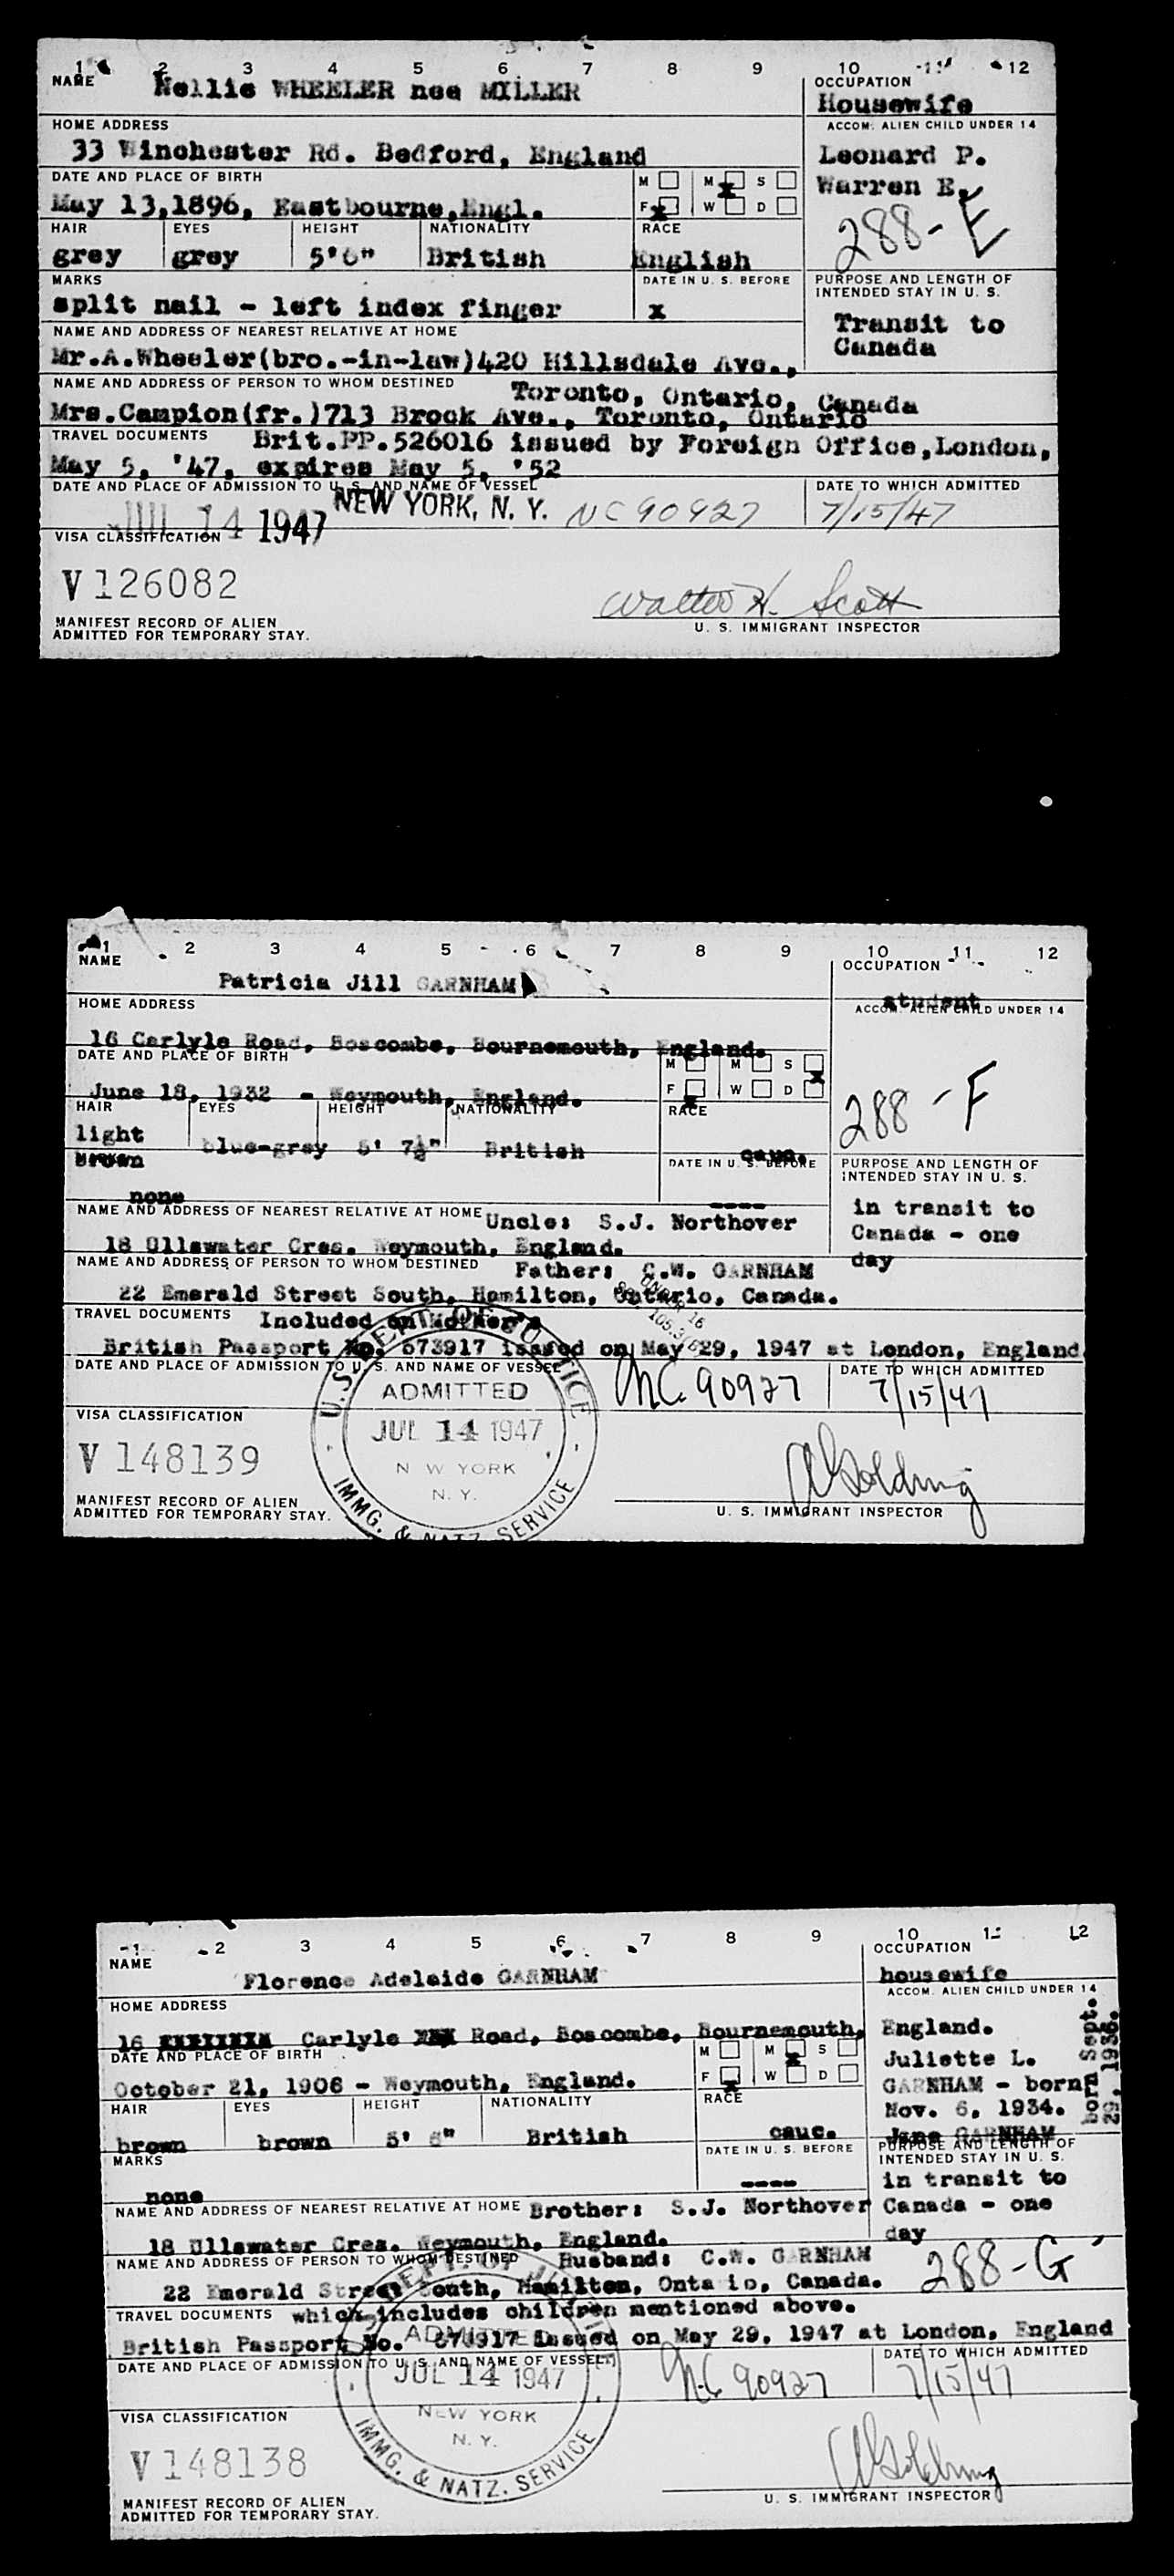 1 2 3 4 5 6 7 8 9 10 11 12
NAME
Nellie WHEELER nee MILLER
OCCUPATION
Housewife
HOME ADDRESS
33 Winchester Rd. Bedford, England
ACCOM. ALIEN CHILD UNDER 14
Leonard P.
Warren E.
288-E
DATE AND PLACE OF BIRTH
May 13,1896, Eastbourne,Engl.
M M S
F W D
x x
HAIR EYES HEIGHT NATIONALITY RACE
grey grey 5'6" British English
MARKS
split nail - left index finger
DATE IN U. S. BEFORE
x
PURPOSE AND LENGTH OF
INTENDED STAY IN U. S.
Transit to
Canada
NAME AND ADDRESS OF NEAREST RELATIVE AT HOME
Mr.A.Wheeler(bro.-in-law)420 Hillsdale Ave.,
Toronto, Ontario, Canada
NAME AND ADDRESS OF PERSON TO WHOM DESTINED
Mrs.Campion(fr.)713 Brock Ave., Toronto, Ontario
TRAVEL DOCUMENTS Brit.PP.526016 issued by Foreign Office,London,
May 5, '47, expires May 5, '52
DATE AND PLACE OF ADMISSION TO U. S. AND NAME OF VESSEL
JUL 14 1947 NEW YORK, N. Y. NC 90927
DATE TO WHICH ADMITTED
7/15/47
VISA CLASSIFICATION
V 126082
Walter H. Scott
MANIFEST RECORD OF ALIEN
ADMITTED FOR TEMPORARY STAY.
U. S. IMMIGRANT INSPECTOR
1 2 3 4 5 6 7 8 9 10 11 12
NAME
Patricia Jill GARNHAM
OCCUPATION
student
HOME ADDRESS
16 Carlyle Road, Boscombe, Bournemouth, England.
ACCOM. ALIEN CHILD UNDER 14
288-F
DATE AND PLACE OF BIRTH
June 18, 1932 - Weymouth, England.
M M S
F W D
x x
HAIR EYES HEIGHT NATIONALITY RACE
light
brown blue-grey 5' 7½" British cauc.
none
DATE IN U. S. BEFORE
----
PURPOSE AND LENGTH OF
INTENDED STAY IN U. S.
in transit to
Canada - one
day
NAME AND ADDRESS OF NEAREST RELATIVE AT HOME Uncle: S.J. Northover
18 Ullswater Cres. Weymouth, England.
NAME AND ADDRESS OF PERSON TO WHOM DESTINED Father: C.W. GARNHAM
22 Emerald Street South, Hamilton, Ontario, Canada.
UNDER 16
TRAVEL DOCUMENTS Included on Mother's
British Passport No. 673917 issued on May 29, 1947 at London, England
DATE AND PLACE OF ADMISSION TO U. S. AND NAME OF VESSEL
NC 90927
DATE TO WHICH ADMITTED
7/15/47
U.S. DEPT. OF JUSTICE
ADMITTED
JUL 14 1947
N W YORK
N. Y.
IMMG. & NATZ. SERVICE
VISA CLASSIFICATION
V 148139
A Golding
MANIFEST RECORD OF ALIEN
ADMITTED FOR TEMPORARY STAY.
U. S. IMMIGRANT INSPECTOR
1 2 3 4 5 6 7 8 9 10 11 12
NAME
Florence Adelaide GARNHAM
OCCUPATION
housewife
HOME ADDRESS
16 Carlyle Road, Boscombe, Bournemouth, England.
ACCOM. ALIEN CHILD UNDER 14
Juliette L.
GARNHAM - born
Nov. 6, 1934.
June GARNHAM
born Sept.
29, 1936.
DATE AND PLACE OF BIRTH
October 21, 1906 - Weymouth, England.
M M S
F W D
x x
HAIR EYES HEIGHT NATIONALITY RACE
brown brown 5' 6" British cauc.
MARKS
none
DATE IN U. S. BEFORE
----
PURPOSE AND LENGTH OF
INTENDED STAY IN U. S.
in transit to
Canada - one
day
288-G
NAME AND ADDRESS OF NEAREST RELATIVE AT HOME Brother: S.J. Northover
18 Ullswater Cres. Weymouth, England.
NAME AND ADDRESS OF PERSON TO WHOM DESTINED Husband: C.W. GARNHAM
22 Emerald Street South, Hamilton, Ontario, Canada.
TRAVEL DOCUMENTS which includes children mentioned above.
British Passport No. 673917 issued on May 29, 1947 at London, England
DATE AND PLACE OF ADMISSION TO U. S. AND NAME OF VESSEL
NC 90927
DATE TO WHICH ADMITTED
7/15/47
ADMITTED
JUL 14 1947
NEW YORK
N. Y.
IMMG. & NATZ. SERVICE
VISA CLASSIFICATION
V 148138
A Golding
MANIFEST RECORD OF ALIEN
ADMITTED FOR TEMPORARY STAY.
U. S. IMMIGRANT INSPECTOR